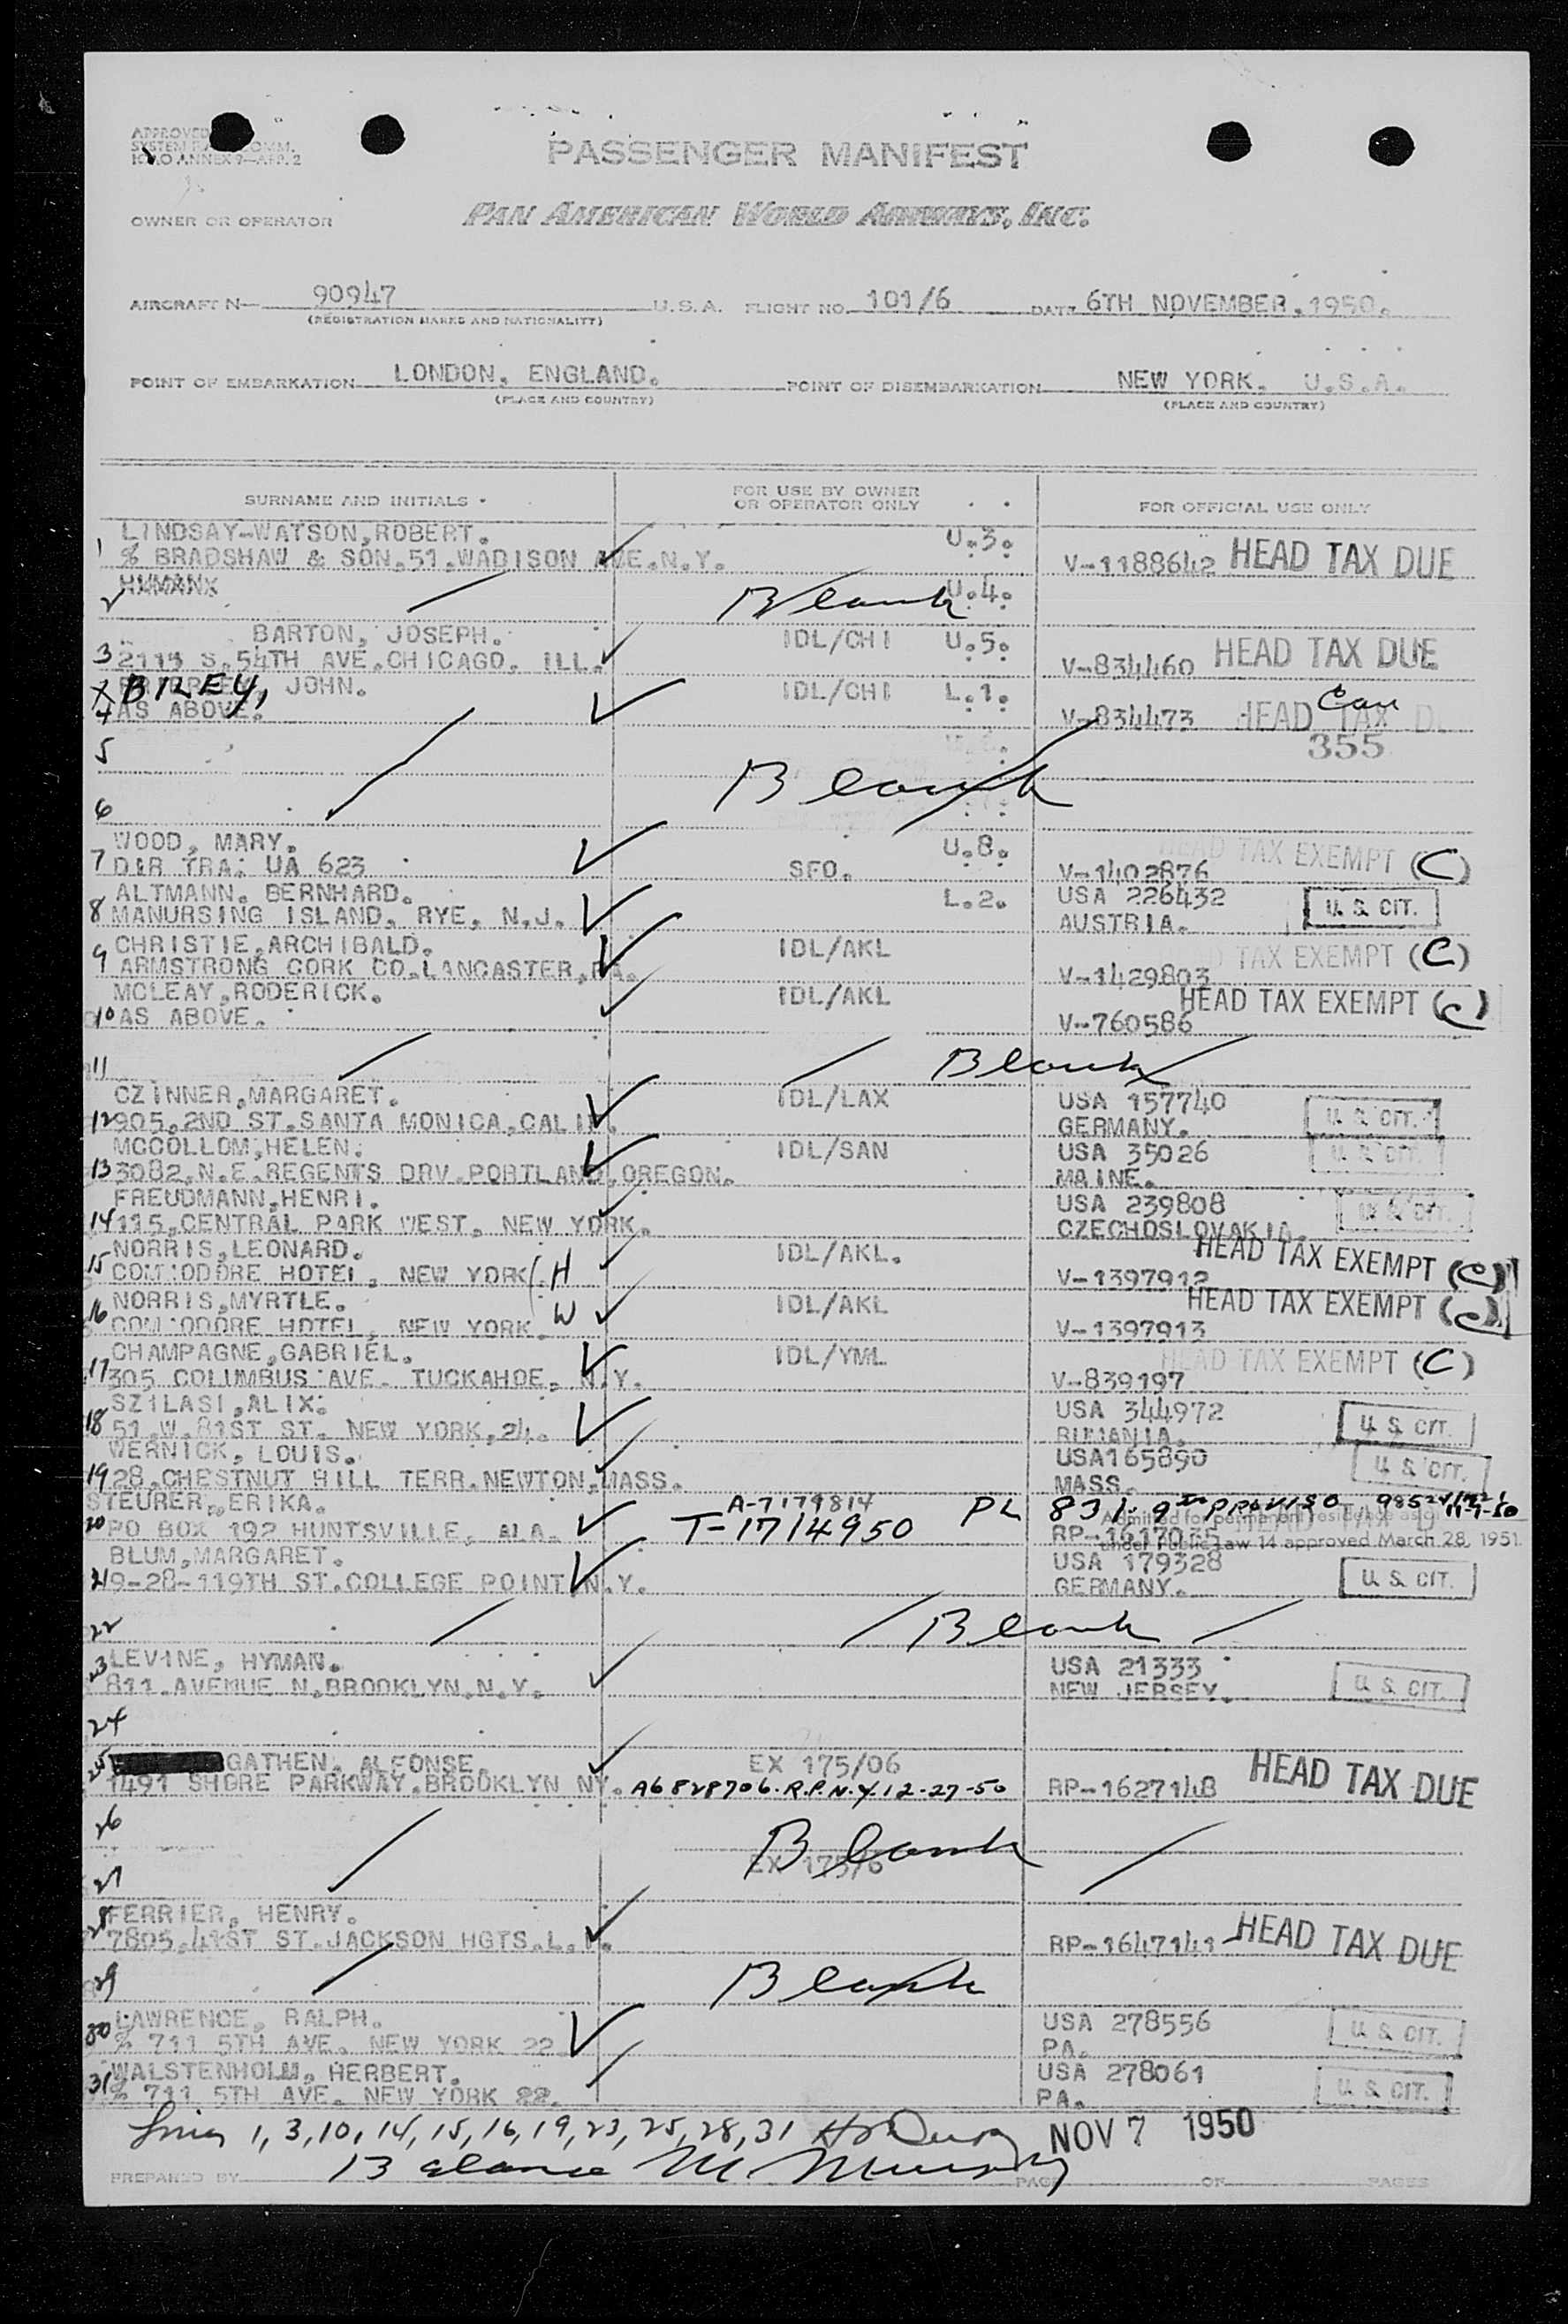 APPROVED
SYSTEM COMM.
ICAO ANNEX 9—APP. 2
PASSENGER MANIFEST
OWNER OR OPERATOR PAN AMERICAN WORLD AIRWAYS, INC.
AIRCRAFT N— 90947 U.S.A. FLIGHT NO. 101/6 DATE 6TH NOVEMBER,1950.
(REGISTRATION MARKS AND NATIONALITY)
POINT OF EMBARKATION LONDON, ENGLAND. POINT OF DISEMBARKATION NEW YORK, U.S.A.
(PLACE AND COUNTRY) (PLACE AND COUNTRY)
SURNAME AND INITIALS FOR USE BY OWNER OR OPERATOR ONLY FOR OFFICIAL USE ONLY
LINDSAY-WATSON,ROBERT. U.3.
1 % BRADSHAW & SON,51,WADISON AVE.N.Y. V-1188642 HEAD TAX DUE
2 HUMANX Blank U.4.
BARTON, JOSEPH. IDL/CHI U.5.
3 2115 S.54TH AVE.CHICAGO, ILL. V-834460 HEAD TAX DUE
X BILEY, JOHN. IDL/CHI L.1.
4 AS ABOVE. V-834473 HEAD TAX D Can
5 355
Blank
6
WOOD, MARY. U.8.
7 DIR TRA: UA 623 SFO. V-1402876 HEAD TAX EXEMPT (C)
ALTMANN, BERNHARD. L.2. USA 226432
8 MANURSING ISLAND, RYE, N.J. AUSTRIA. U. S. CIT.
CHRISTIE,ARCHIBALD. IDL/AKL
9 ARMSTRONG CORK CO.LANCASTER,PA. V-1429803 TAX EXEMPT (C)
MCLEAY,RODERICK. IDL/AKL
10 AS ABOVE. V-760586 HEAD TAX EXEMPT (C)
11 Blank
CZINNER,MARGARET. IDL/LAX USA 157740
12 905,2ND ST.SANTA MONICA,CALIF. GERMANY. U. S. CIT.
MCCOLLOM,HELEN. IDL/SAN USA 35026
13 3082,N.E.REGENTS DRV.PORTLAND,OREGON. MAINE. U. S. CIT.
FREUDMANN,HENRI. USA 239808
14 115,CENTRAL PARK WEST, NEW YORK. CZECHOSLOVAKIA. U. S. CIT.
NORRIS,LEONARD. IDL/AKL.
15 COMMODORE HOTEL, NEW YORK. H V-1397912 HEAD TAX EXEMPT (C)
NORRIS,MYRTLE. IDL/AKL
16 COMMODORE HOTEL, NEW YORK. W V-1397913 HEAD TAX EXEMPT (C)
CHAMPAGNE,GABRIEL. IDL/YML
17 305 COLUMBUS AVE. TUCKAHOE, N.Y. V-839197 HEAD TAX EXEMPT (C)
SZILASI,ALIX. USA 344972
18 51,W.81ST ST. NEW YORK,24. RUMANIA. U. S. CIT.
WERNICK, LOUIS. USA165890
19 28,CHESTNUT HILL TERR.NEWTON,MASS. MASS. U. S. CIT.
STEURER,ERIKA. A-7179814 PL 831. 9th proviso
20 PO BOX 192 HUNTSVILLE, ALA. T-1714950 RP-1617035 11-7-50
Admitted for permanent residence
under Public Law 14 approved March 28, 1951.
BLUM,MARGARET. USA 179328
21 9-28-119TH ST.COLLEGE POINT,N.Y. GERMANY. U. S. CIT.
22 Blank
23 LEVINE, HYMAN. USA 21333
811.AVENUE N.BROOKLYN.N.Y. NEW JERSEY. U. S. CIT.
24
25 GATHEN, ALFONSE. EX 175/06
1491 SHORE PARKWAY.BROOKLYN NY. A6828706.R.P.N.Y.12-27-50 RP-1627148 HEAD TAX DUE
26 Blank
27 EX 175/6
28 FERRIER, HENRY.
7805,41ST ST.JACKSON HGTS.L.I. RP-1647141 HEAD TAX DUE
29 Blank
LAWRENCE, RALPH. USA 278556
30 % 711 5TH AVE. NEW YORK 22. PA. U. S. CIT.
WALSTENHOLM, HERBERT. USA 278061
31 % 711 5TH AVE. NEW YORK 22. PA. U. S. CIT.
Lines 1, 3, 10, 14, 15, 16, 19, 23, 25, 28, 31 NOV 7 1950
Balance
PREPARED BY PAGE OF PAGES